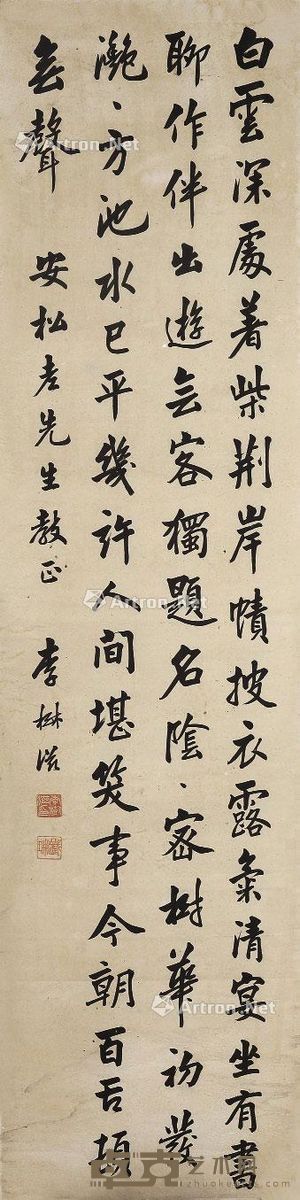 白雲深處著柴荆岸幘披衣露氣清宴坐有書
聊作伴出遊無客獨題名陰〻密樹華初發
灔〻方池水已平幾許人間堪笑事今朝百舌頓
無聲
安松老先生教正 李
Artron.Net
Artron.Net
Artron.Net
卓克艺术网